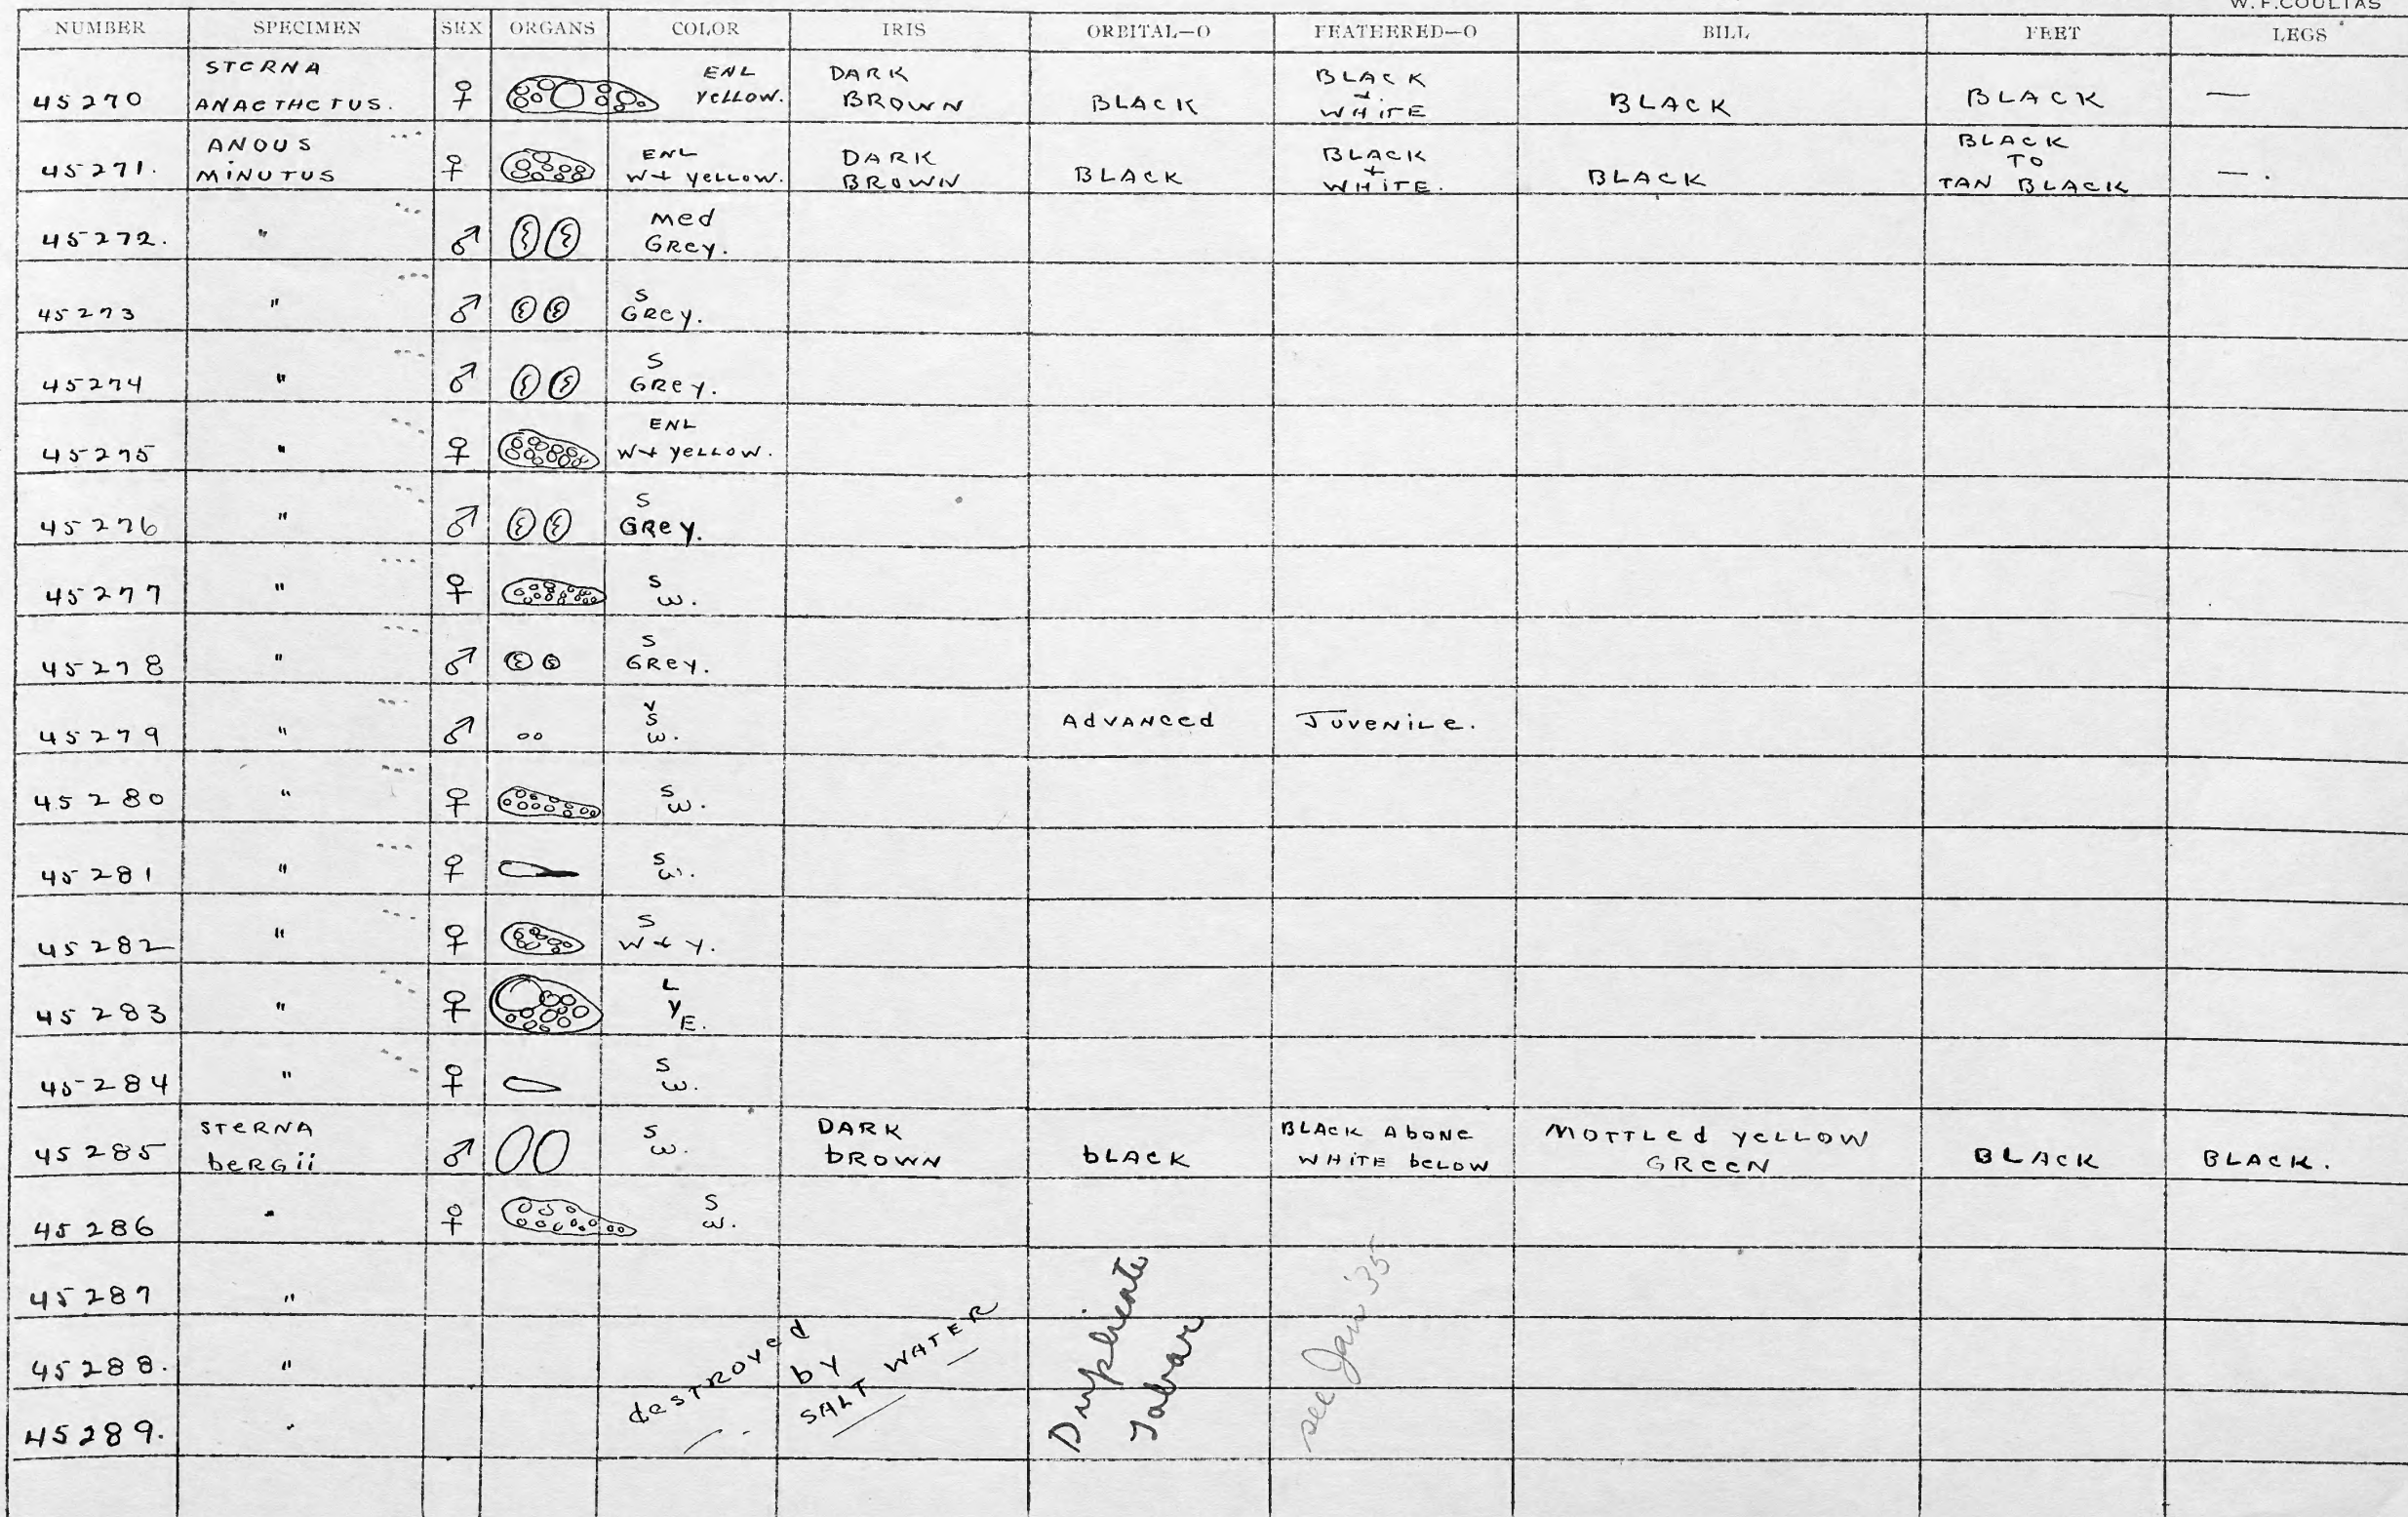 W. F. COULTAS
NUMBER SPECIMEN SEX ORGANS COLOR IRIS ORBITAL—O FEATHERED—O BILL FEET LEGS
45270 STERNA ANAETHETUS. ♀ ENL YELLOW. DARK BROWN BLACK BLACK + WHITE BLACK BLACK —
45271. ANOUS MINUTUS ♀ ENL W+ YELLOW. DARK BROWN BLACK BLACK + WHITE. BLACK BLACK TO TAN BLACK — .
45272. " ♂ Med GREY.
45273 " ♂ S GREY.
45274 " ♂ S GREY.
45275 " ♀ ENL W+ YELLOW.
45276 " ♂ S GREY.
45277 " ♀ S W.
45278 " ♂ S GREY.
45279 " ♂ V S W. AdVANCEd JUVENILE.
45280 " ♀ S W.
45281 " ♀ S W.
45282 " ♀ S W + Y.
45283 " ♀ L Y E.
45284 " ♀ S W.
45285 STERNA bERGii ♂ S W. DARK bROWN bLACK BLACK AbOVE WHITE bELOW MOTTLEd YELLOW GREEN BLACK BLACK.
45286 " ♀ S W.
45287 "
45288. "
45289. "
dESTROYEd
bY
SALT WATER
Duplicate
Tabar
see Jan '35